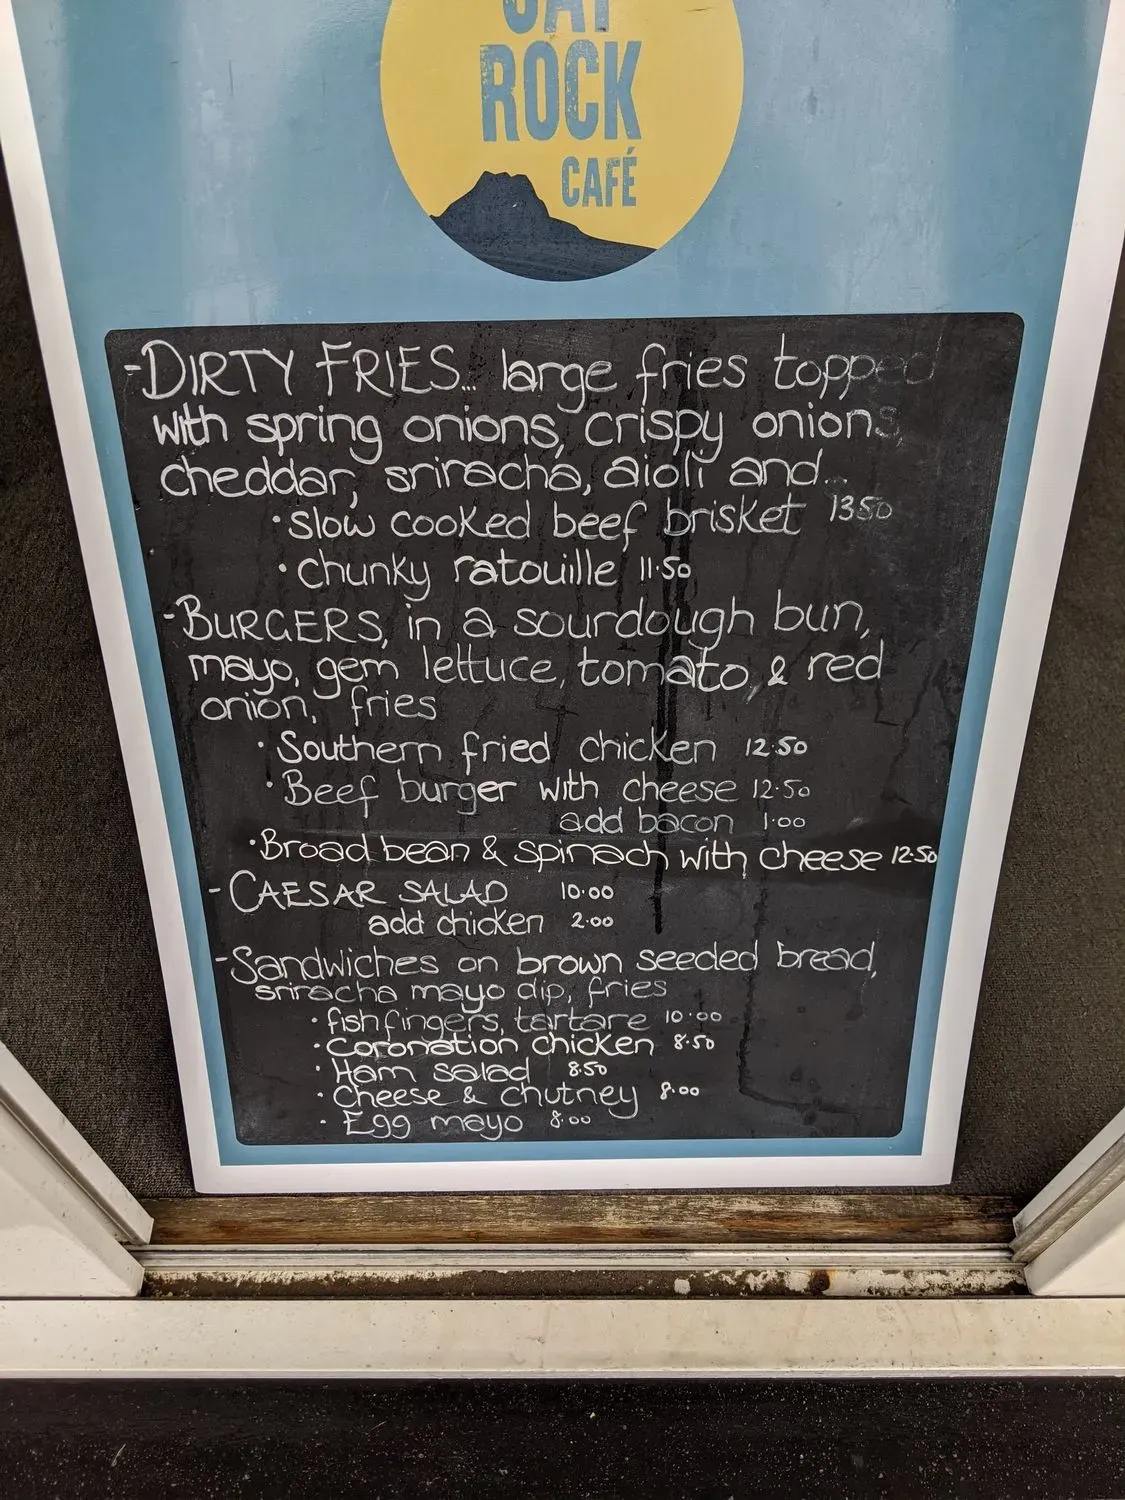 ROCK
CAFÉ
-DIRTY FRIES... large fries topped
with spring onions, crispy onions,
cheddar, sriracha, aioli and...
• slow cooked beef brisket 13.50
• chunky ratouille 11.50
-BURGERS, in a sourdough bun,
mayo, gem lettuce, tomato, & red
onion, fries
• Southern fried chicken 12.50
• Beef burger with cheese 12.50
add bacon 1.00
• Broad bean & spinach with cheese 12.50
- CAESAR SALAD 10.00
add chicken 2.00
-Sandwiches on brown seeded bread,
sriracha mayo dip, fries
• fish fingers, tartare 10.00
• coronation chicken 8.50
• Ham salad 8.50
• Cheese & chutney 8.00
• Egg mayo 8.00